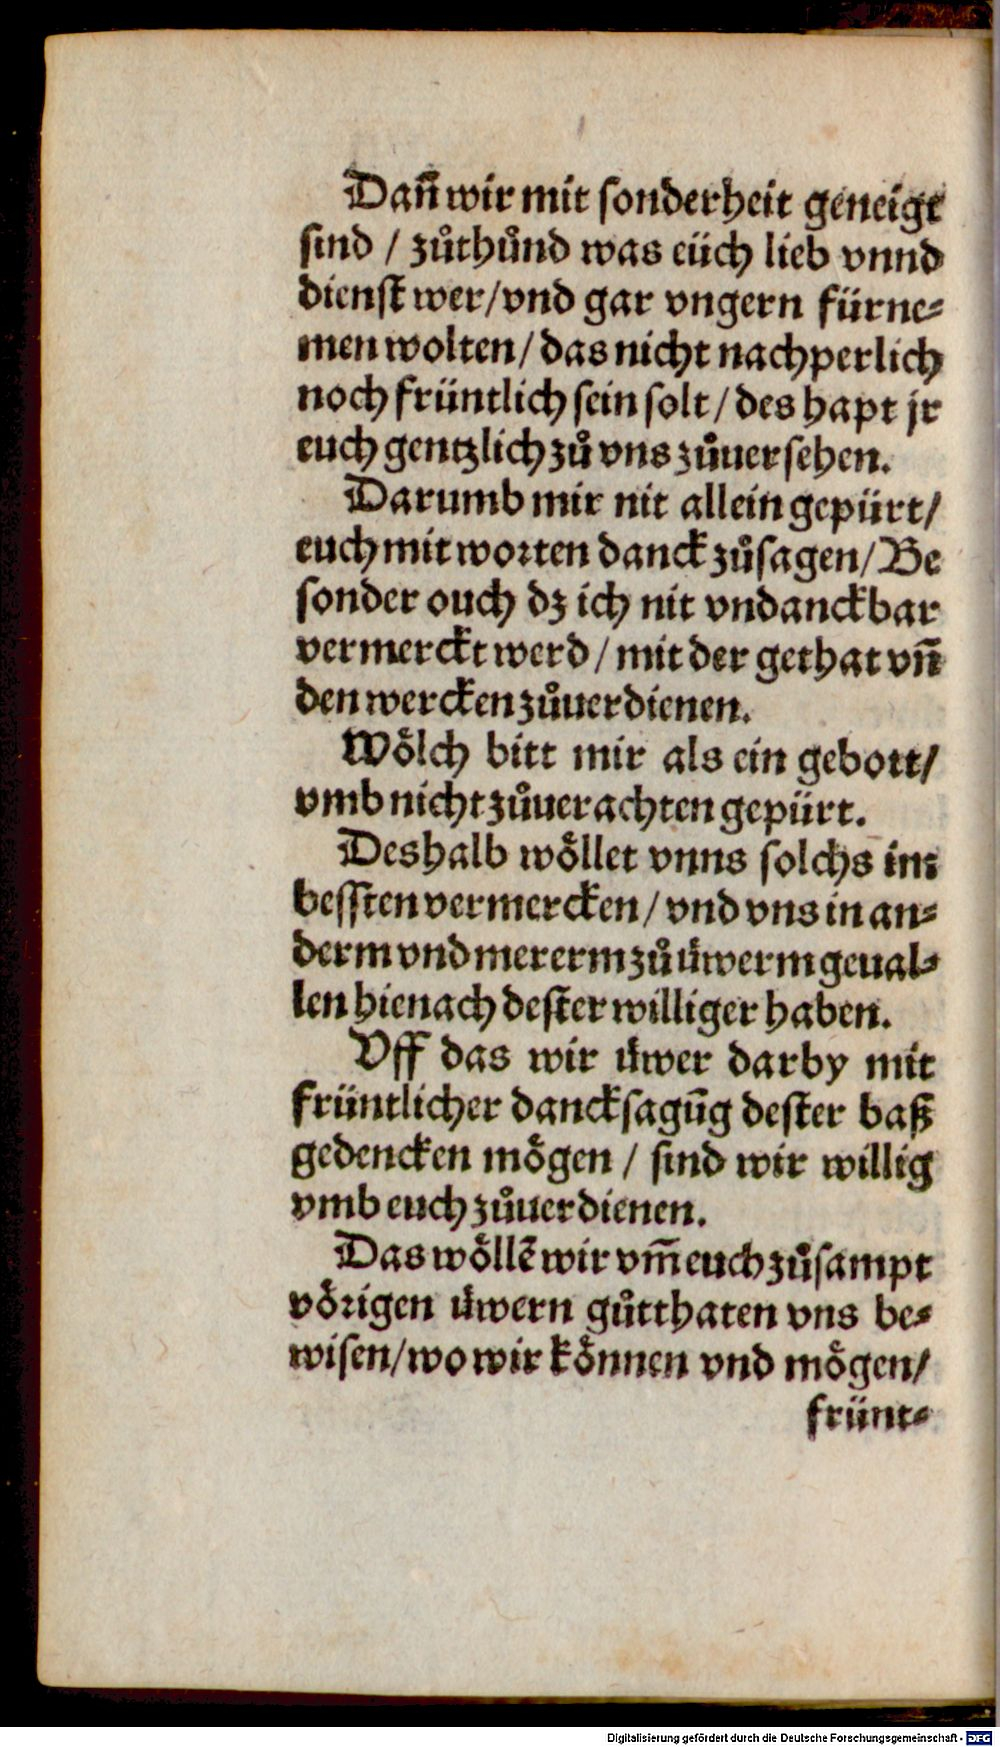 Dañ wir mit sonderheit geneigt
sind / zůthůnd was eüch lieb vnnd
dienst wer/vnd gar vngern fürne⸗
men wolten/das nicht nachperlich
noch früntlich sein solt/des hapt jr
euch gentzlich zů vns zůuersehen.
Darumb mir nit allein gepürt/
euch mit worten danck zůsagen/Be
sonder ouch dz ich nit vndanckbar
vermerckt werd/mit der gethat vñ
den wercken zůuerdienen.
Wölch bitt mir als ein gebott/
vmb nicht zůuerachten gepürt.
Deshalb wöllet vnns solchs im
bessten vermercken/vnd vns in an⸗
derm vnd mererm zů üwerm geual⸗
len hienach dester williger haben.
Vff das wir üwer darby mit
früntlicher dancksagūg dester baß
gedencken mögen / sind wir willig
vmb euch zůuerdienen.
Das wöllē wir vm̄ euch zůsampt
vörigen üwern gůtthaten vns be⸗
wisen/wo wir können vnd mögen/
frünt⸗
Digitalisierung gefördert durch die Deutsche Forschungsgemeinschaft - DFG